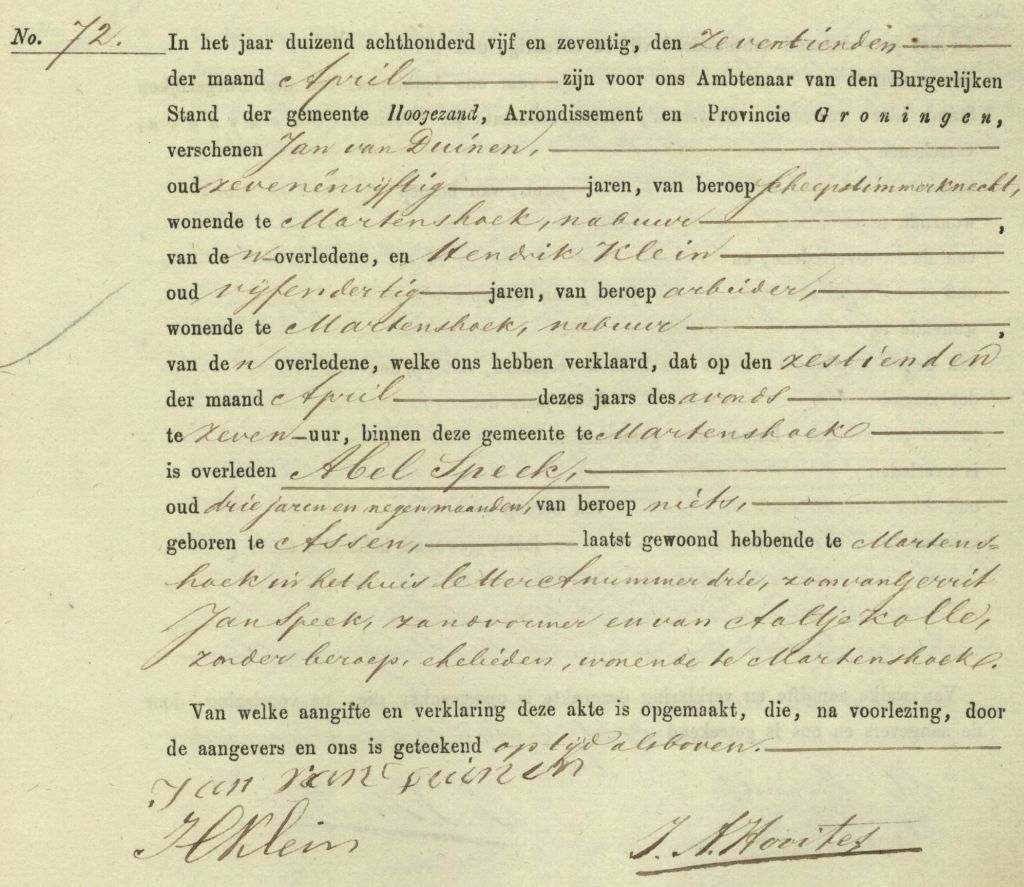 No. 72. In het jaar duizend achthonderd vijf en zeventig, den zeventienden
der maand April zijn voor ons Ambtenaar van den Burgerlijken
Stand der gemeente Hoogezand, Arrondissement en Provincie Groningen,
verschenen Jan van Duinen,
oud zevenënvijftig jaren, van beroep scheepstimmerknecht,
wonende te Martenshoek, nabuur,
van de n overledene, en Hendrik Klein
oud vijfendertig jaren, van beroep arbeider,
wonende te Martenshoek, nabuur,
van de n overledene, welke ons hebben verklaard, dat op den zestienden
der maand April dezes jaars des avonds
te zeven uur, binnen deze gemeente te Martenshoek
is overleden Abel Speek,
oud drie jaren en negen maanden, van beroep niets,
geboren te Assen, laatst gewoond hebbende te Martens=
hoek in het huis letter A nummer drie, zoon van Gerrit
Jan Speek, zandvormer en van Aaltje Kolle,
zonder beroep, ehelieden, wonende te Martenshoek.
Van welke aangifte en verklaring deze akte is opgemaakt, die, na voorlezing, door
de aangevers en ons is geteekend op tijd alsboven.
Jan van Duinen
H Klein J. A. Hooites